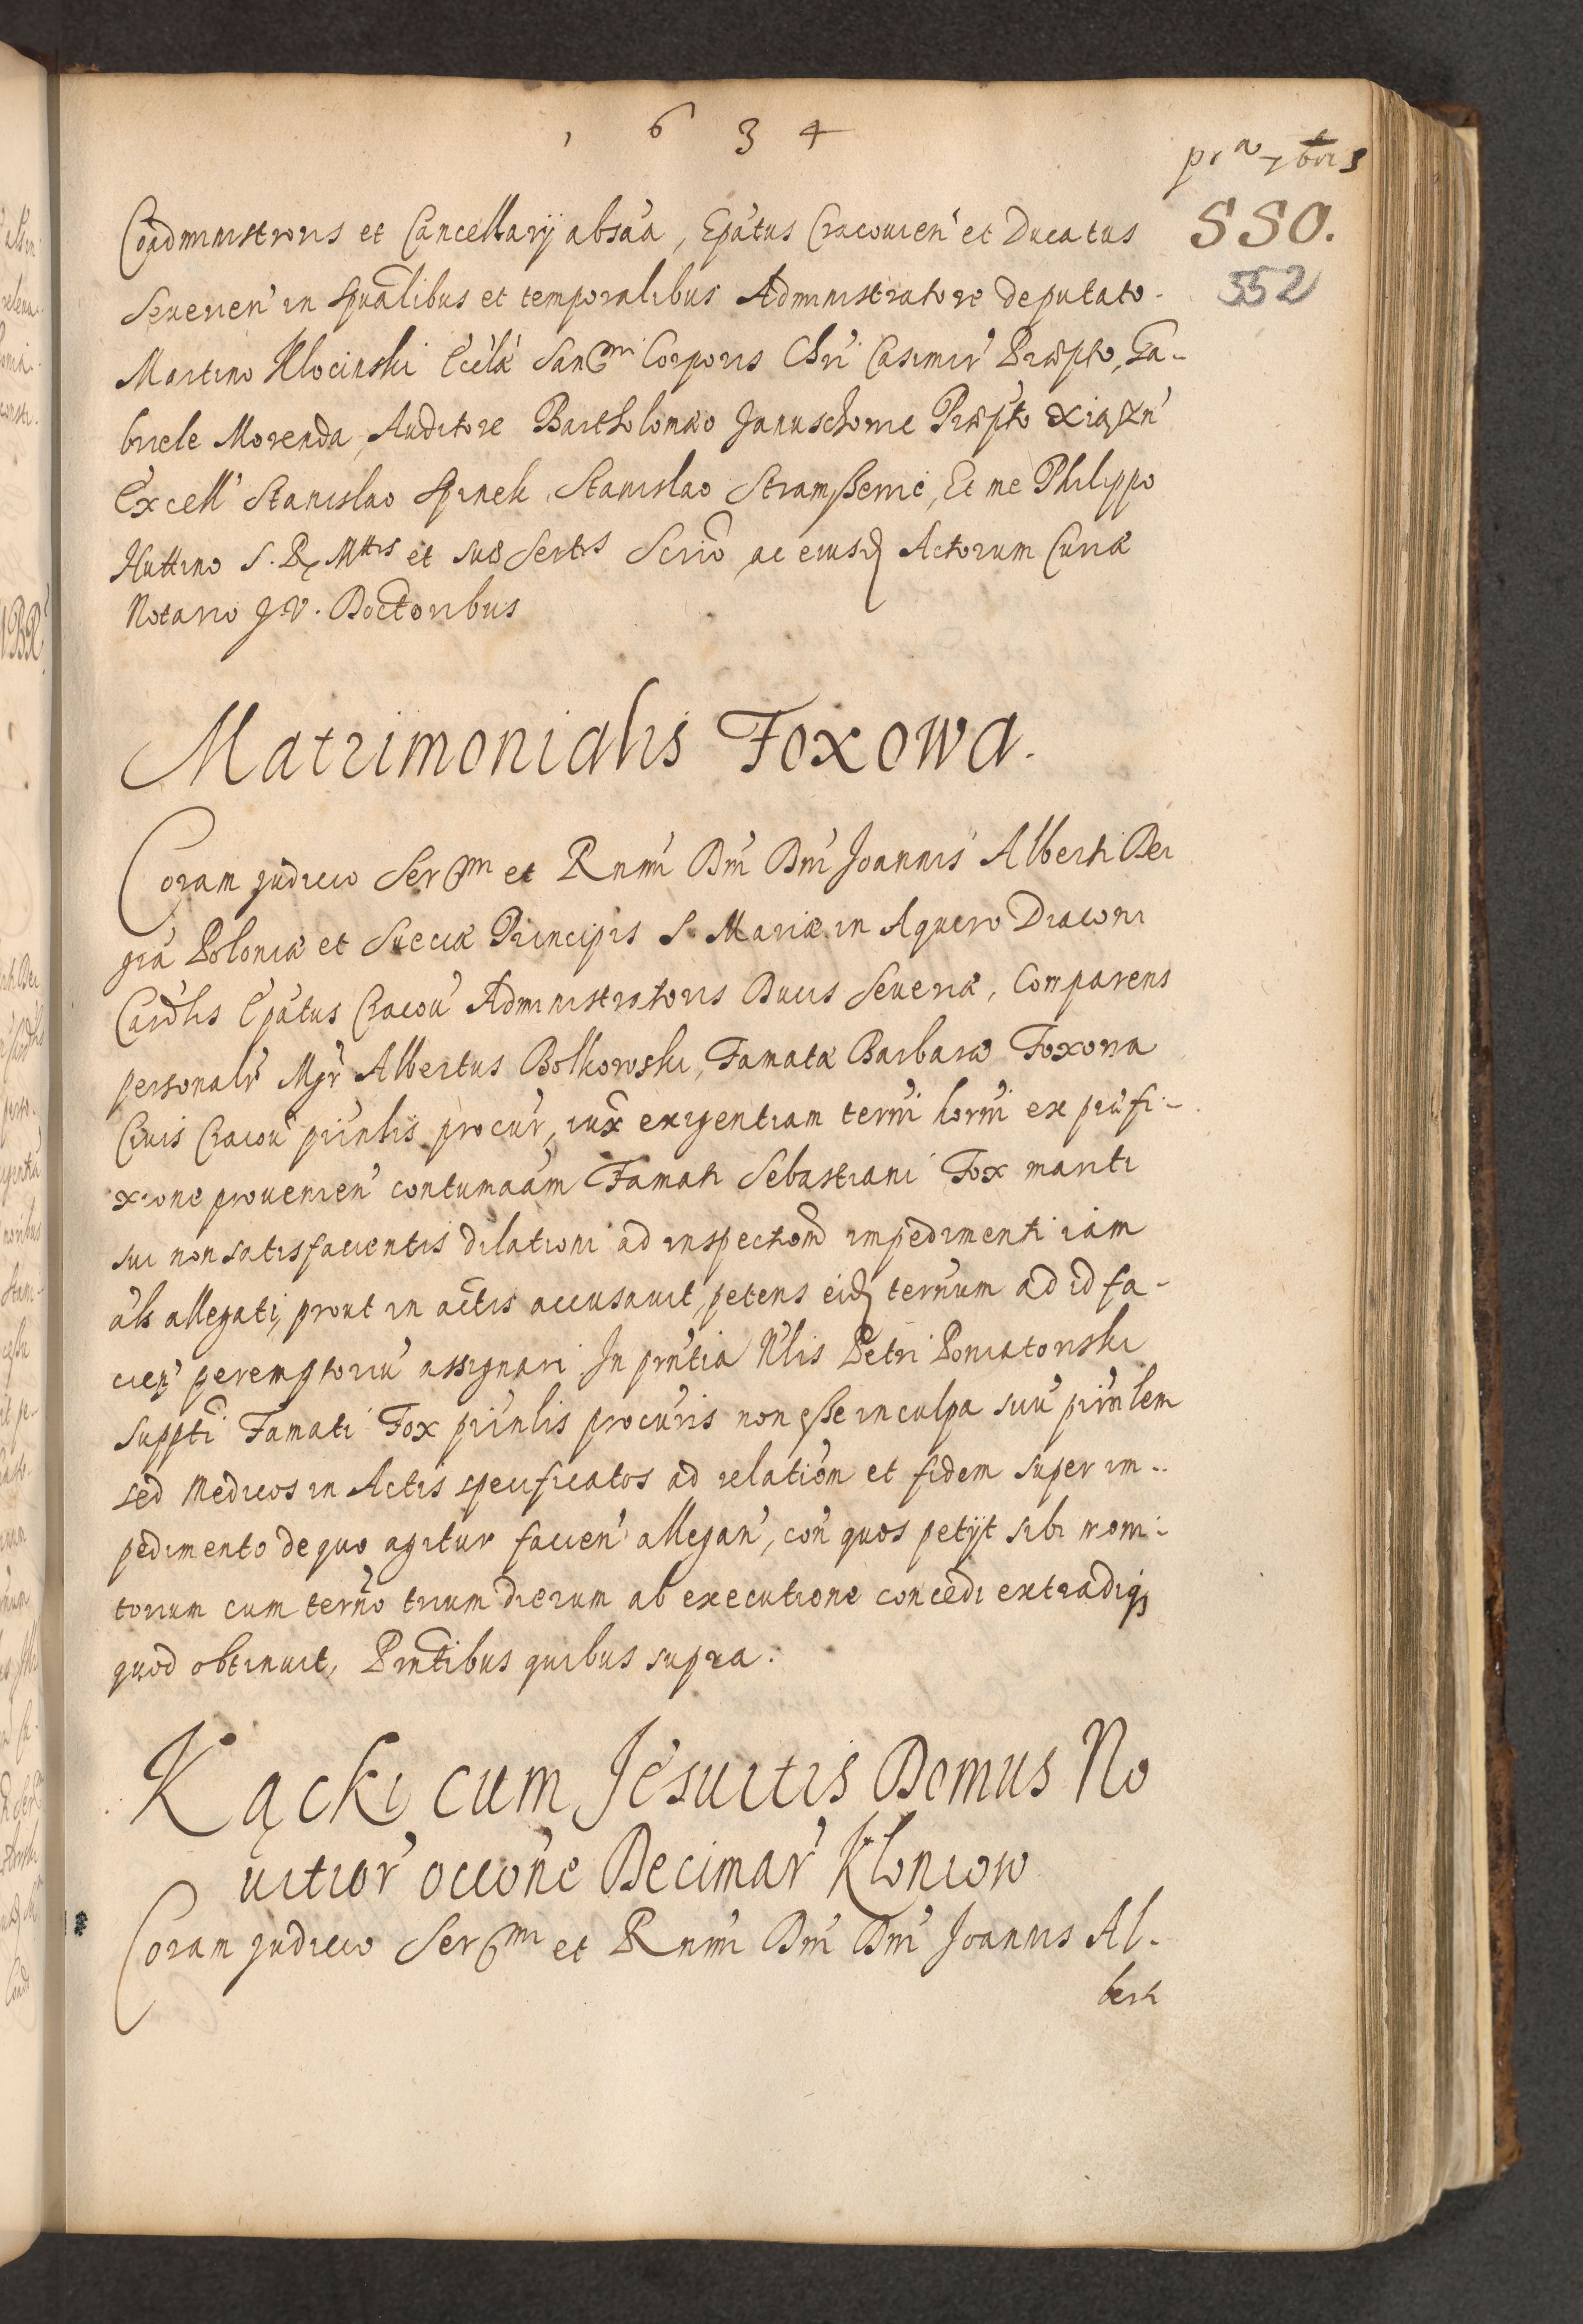 1 6 3 4
pr a 7bris
Coadministroris et Cancellarij absáa, Epátus Cracouien' et Ducatus
550.
Seuerien' in Spuãlibus et temporalibus Administratore deputato.
552
Martino Klocinski Eccłæ Sanctmi Corporis Chri' Casimir' Præpto, Ga-
briele Morenda, Auditore Bartholomæo Januschowie Præpto Xiążn'
Excell' Stanislao Spinek, Stanislao Stramßewic, Et me Philippo
Huttino S. R. Mttis et suæ Sertis Scrio ac eiusd Actorum Curiæ
Notario J. V. Doctoribus
Matrimonialis Foxowa.
Coram judicio Serenmi et Rnmi' Dni' Dni' Joannis Alberti Dei
gra' Poloniæ et Sueciæ Principis S. Mariæ in Aquiro Diaconi
Cardlis Epátus Cracou' Administratoris Ducis Seueriæ, Comparens
personalr' Mgr' Albertus Bolkowski, Famatæ Barbaræ Foxowa
Ciuis Cracou' prinlis procur', iux exigentiam termi' horni' ex præfi-
xione prouenien' contumaciam Famati Sebastiani Fox mariti
sui non satisfacientis dilationi ad inspectionem impedimenti iam
als allegati, prout in actis accusauit, petens eid ternum ad id fa-
cien' peremptoriu' assignari In prntia Nlis Petri Poniatowski
suppti Famati Fox prinlis procuris non eße in culpa suu' prinlem
sed Medicos in Actis specificatos ad relation et fidem super im-
pedimento de quo agitur facien' allegan', con' quos petijt sibi moni-
torium cum termo trium dierum ab executione concedi extradiq
quod obtinuit, Prntibus quibus supra.
Kącki cum Jesuitis Domus No
uitior' occone Decimar' Kłoniow
Coram judicio Serenmi et Rnmi' Dni' Dni' Joannis Al-
berti